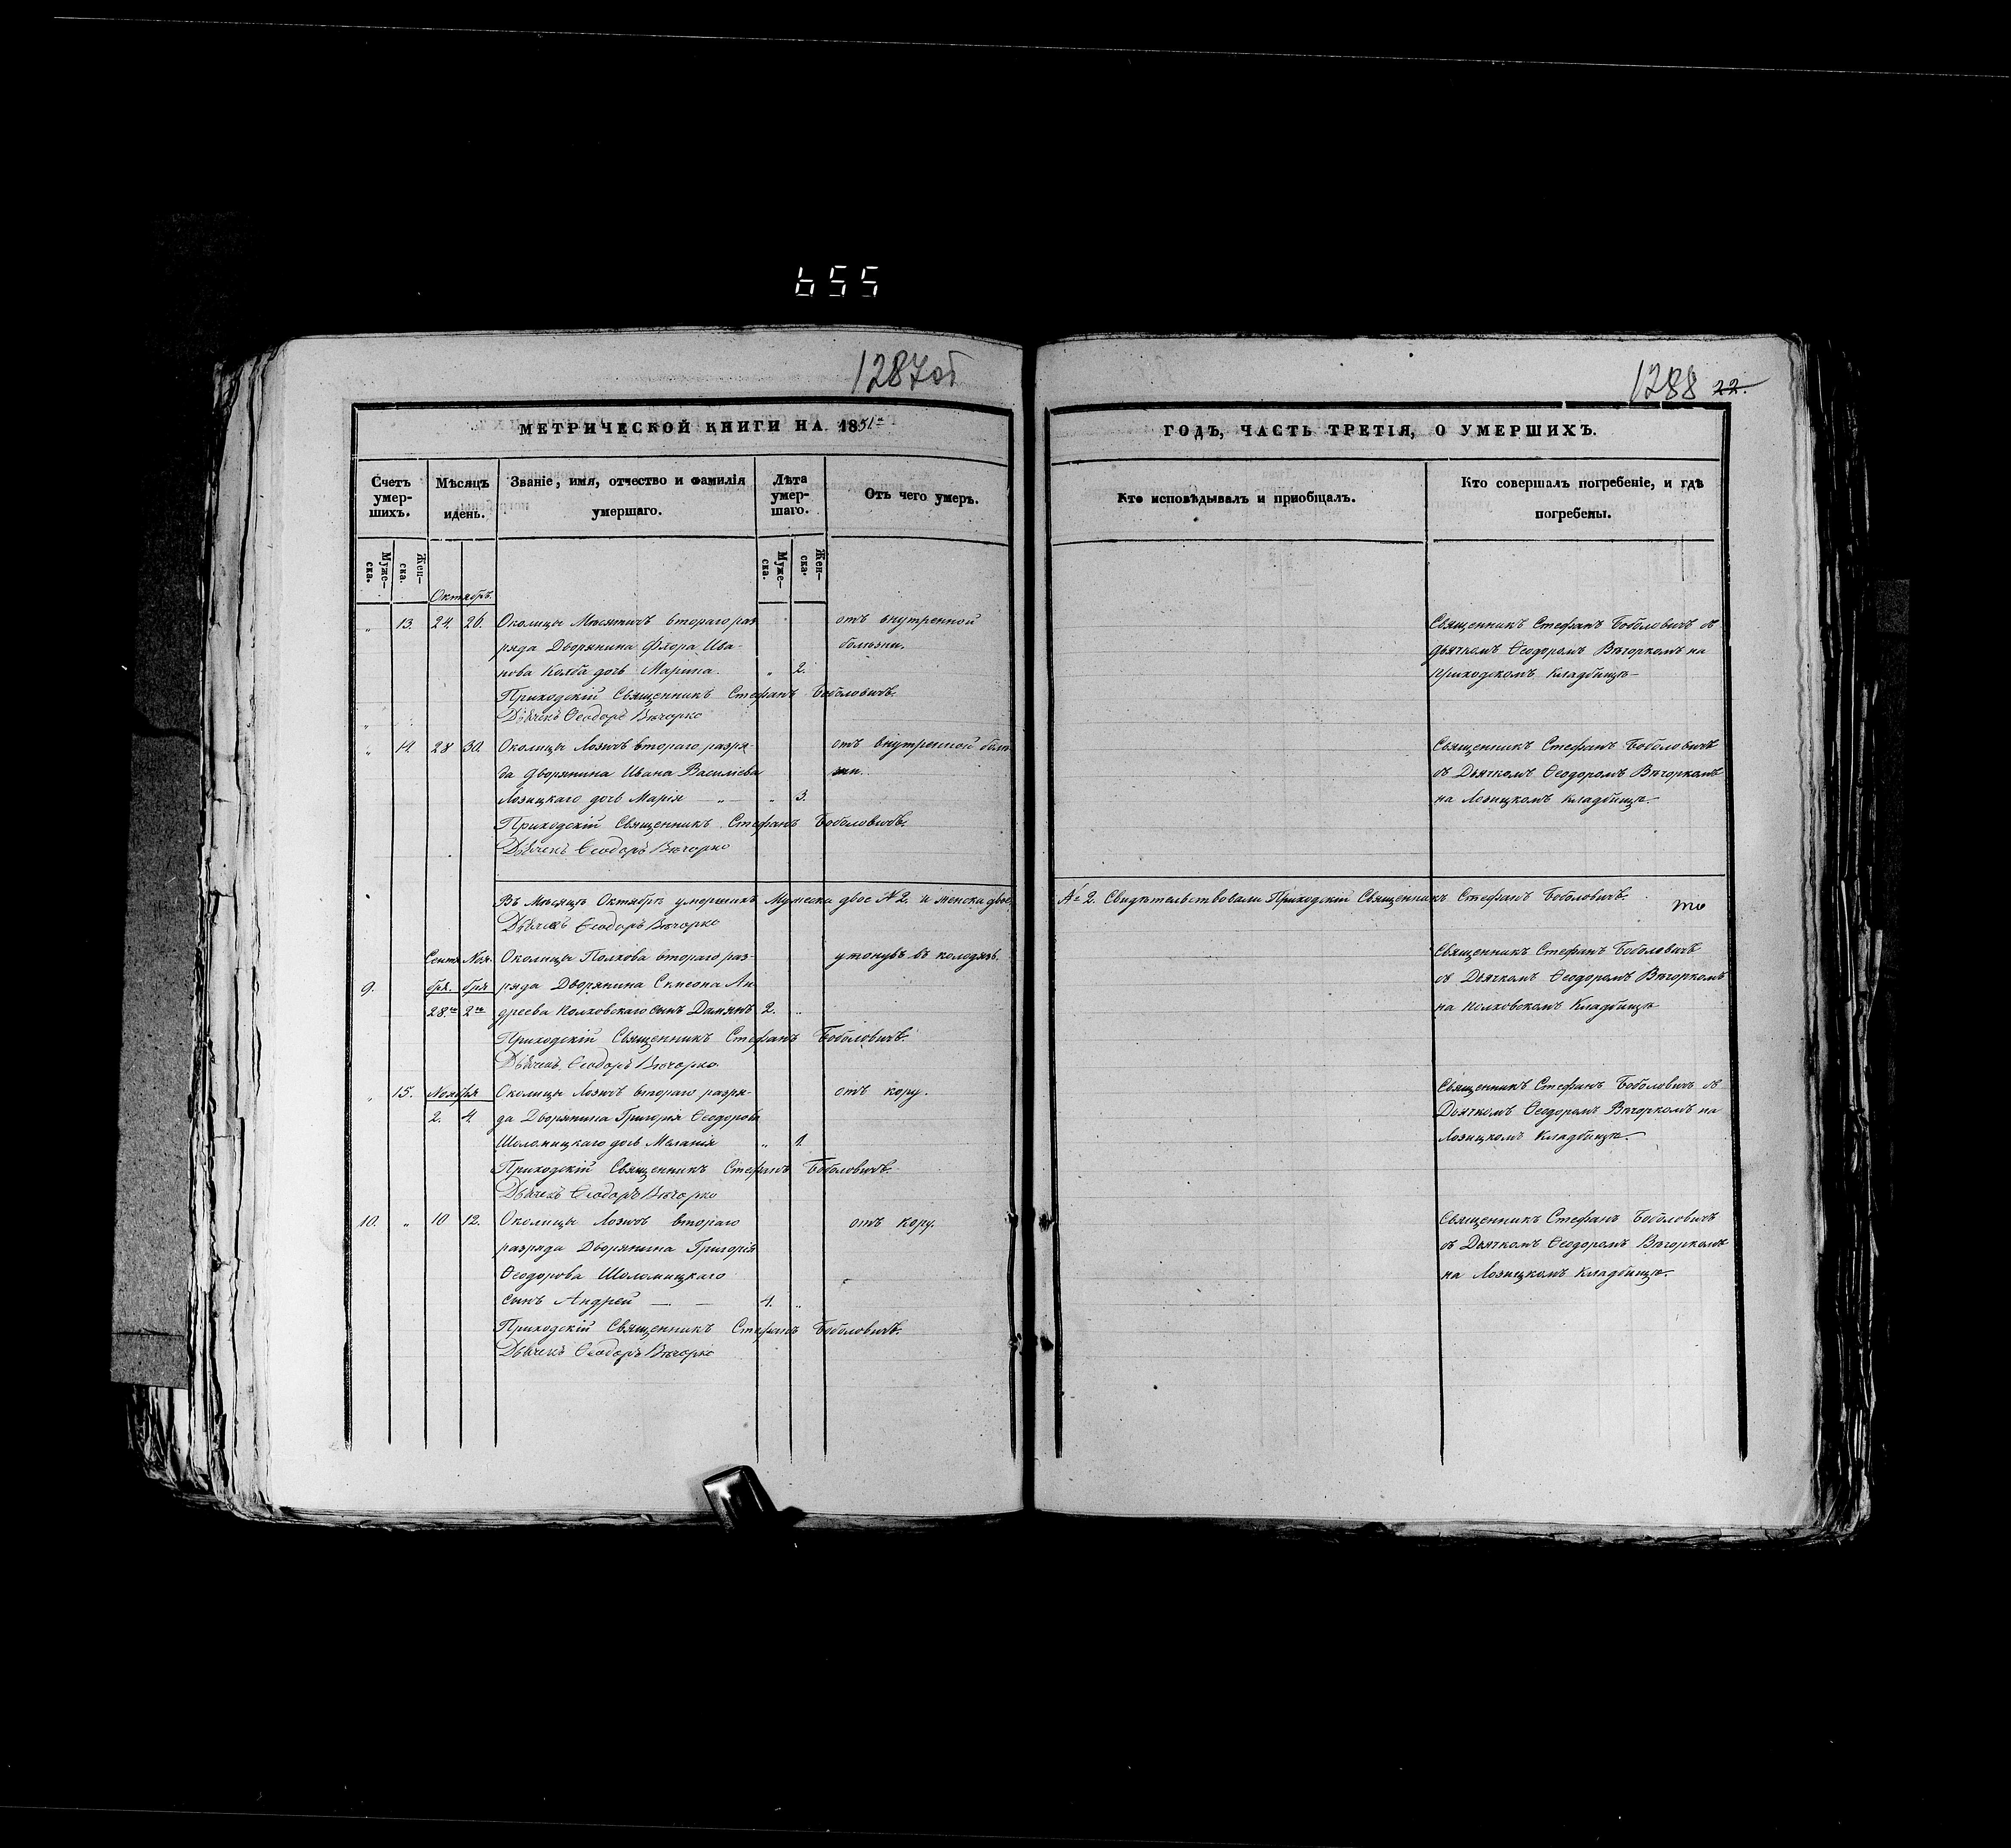 655
1287об
1288 22.
МЕТРИЧЕСКОЙ КНИГИ НА 1851й
ГОДЪ, ЧАСТЬ ТРЕТІЯ, О УМЕРШИХЪ.
Счетъ умер-шихъ.
Муже-ска.
Жен-ска.
Мѣсяцъ идень.
Званіе, имя, отчество и фамилія
умершаго.
Лѣта умер-шаго.
Муже-ска.
Жен-ска.
Отъ чего умеръ.
Кто исповѣдывалъ и приобщалъ.
Кто совершалъ погребеніе, и гдѣ
погребены.
Октябрь.
„ 13. 24. 26. Околицы Мѣсятичъ втораго раз отъ внутренной
ряда Дворянина Флора Ива- болѣзни.
нова Колба дочь Марина. „ 2.
Приходскій Священникъ Стефанъ Боболовичъ.
Дьячекъ Ѳеодоръ Вѣчорко
Священникъ Стефанъ Боболовичъ съ
дьячкомъ Ѳеодоромъ Вѣчоркомъ на
Приходскомъ Кладбищѣ
„ 14. 28 30. Околицы Лозичъ втораго разря- отъ внутренной болѣ
да Дворянина Ивана Василіева зни.
Лозицкаго дочь Марія — „ — „ 3.
Приходскій Священникъ Стефанъ Боболовичъ.
Дьячекъ Ѳеодоръ Вѣчорко
Священникъ Стефанъ Боболовичъ
съ Дьячкомъ Ѳеодоромъ Вѣчоркомъ
на Лозицкомъ Кладбищѣ.
Въ Мѣсяцѣ Октябрѣ умершихъ Мужеска двое №2. и женска двое
№ 2. Свидѣтельствовали Приходскій Священникъ Стефанъ Боболовичъ.
Дьячекъ Ѳеодоръ Вѣчорко
Сентя Ноя- Околицы Полхова втораго раз- утонувъ въ колодязѣ.
9. бря. бря ряда Дворянина Симеона Ан
28.го 2го дреева Полховскаго сынъ Даміянъ 2. „
Приходскій Священникъ Стефанъ Боболовичъ.
Дьячекъ Ѳеодоръ Вѣчорко
Священникъ Стефанъ Боболовичъ
съ Дьячкомъ Ѳеодоромъ Вѣчоркомъ
на Полховскомъ Кладбищѣ
„ 15. Ноября Околицы Лозичъ втораго разря- отъ кору.
2. 4. да Дворянина Григорія Ѳеодорова
Шоломицкаго дочь Меланія „ 1.
Приходскій Священникъ Стефанъ Боболовичъ.
Дьячекъ Ѳеодоръ Вѣчорко
Священникъ Стефанъ Боболовичъ съ
Дьячкомъ Ѳеодоромъ Вѣчоркомъ на
Лозицкомъ Кладбищѣ.
10. „ 10 12. Околицы Лозичъ втораго отъ кору.
разряда Дворянина Григорія
Ѳеодорова Шоломицкаго
сынъ Андрей — — 4. „
Приходскій Священникъ Стефанъ Боболовичъ.
Дьячекъ Ѳеодоръ Вѣчорко
Священникъ Стефанъ Боболовичъ
съ Дьячкомъ Ѳеодоромъ Вѣчоркомъ
на Лозицкомъ Кладбищѣ.